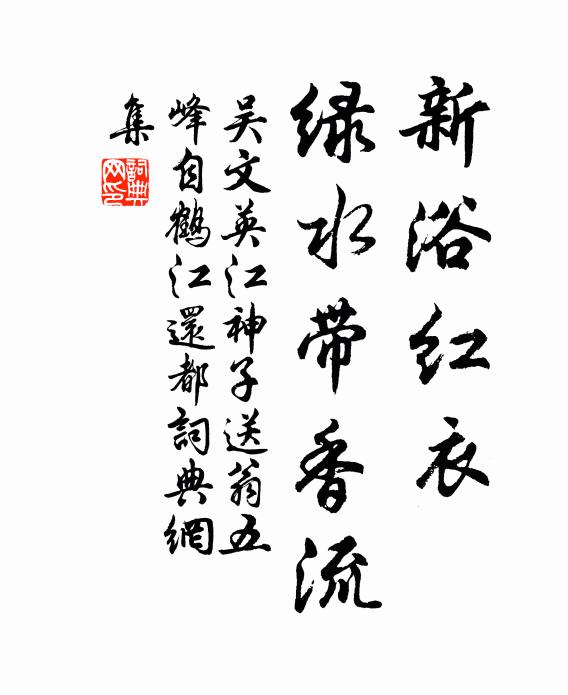 新浴红衣
绿水带香流
吴文英江神子送翁五
峰自鹤江還都詞典網
集
詞典网印